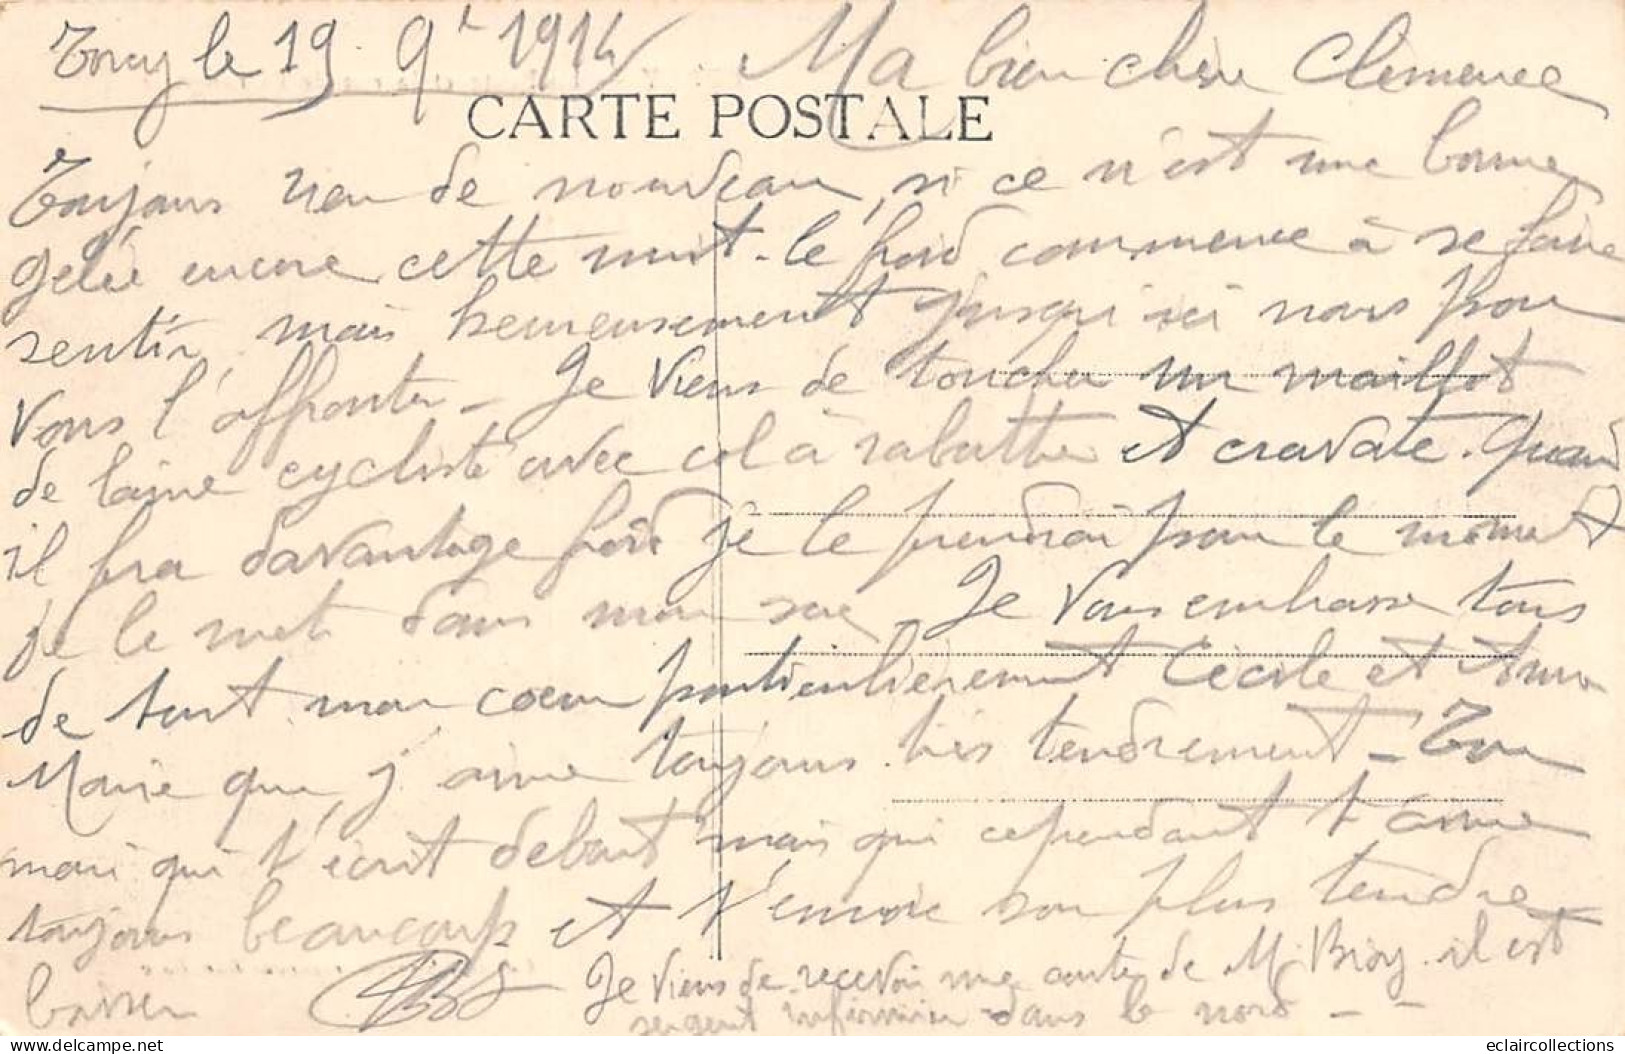 Torcy le 19 9bre 1914 Ma bien chère Clémence
CARTE POSTALE
Toujours rien de nouveau, si ce n'est une bonne
gelée encore cette nuit. le froid commence à se faire
sentir, mais heureusement jusqu'ici nous pou
vons l'affronter. Je viens de toucher un maillot
de laine cycliste avec col à rabattre et cravate. Quand
il fera davantage froid je le prendrai pour le moment
je le mets dans mon sac. Je vous embrasse tous
de tout mon coeur particulièrement Cécile et Anne
Marie que j'aime toujours très tendrement. Ton
mari qui t'écrit debout mais qui cependant t'aime
toujours beaucoup et t'envoie son plus tendre
baiser
Je viens de recevoir une carte de M. il est
sergent infirmier dans le nord - -
eclaircollections